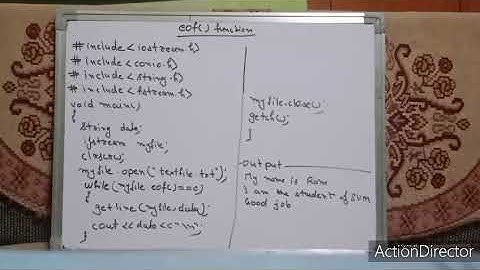 eof() function
#include<iostream.h>
#include<conio.h>
#include<string.h>
#include<fstream.h>
void main()
{
string data;
ifstream myfile;
clrscr();
myfile.open("textfile.txt");
while(myfile.eof()==0)
{
getline(myfile,data);
cout<<data<<"\n";
}
myfile.close();
getch();
}
Output
My name is Ram
I am the student of SVM
Good job
ActionDirector